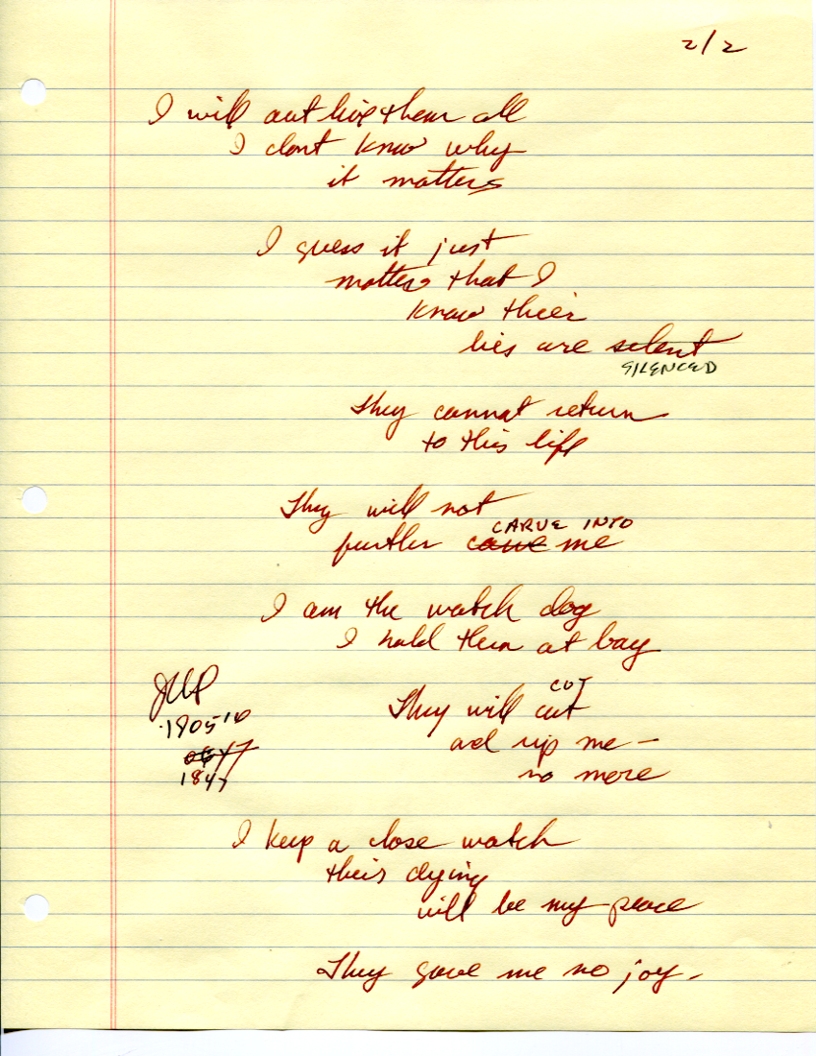 2/2
I will out live them all
I dont know why
it matters
I guess it just
matters that I
know their
lies are silent
SILENCED
They cannot return
to this life
They will not
CARVE INTO
further carve me
I am the watch dog
I hold them at bay
CUT
They will cut
ad rip me -
no more
180510
0647
1847
I keep a close watch
their dying
will be my peace
They gave me no joy.